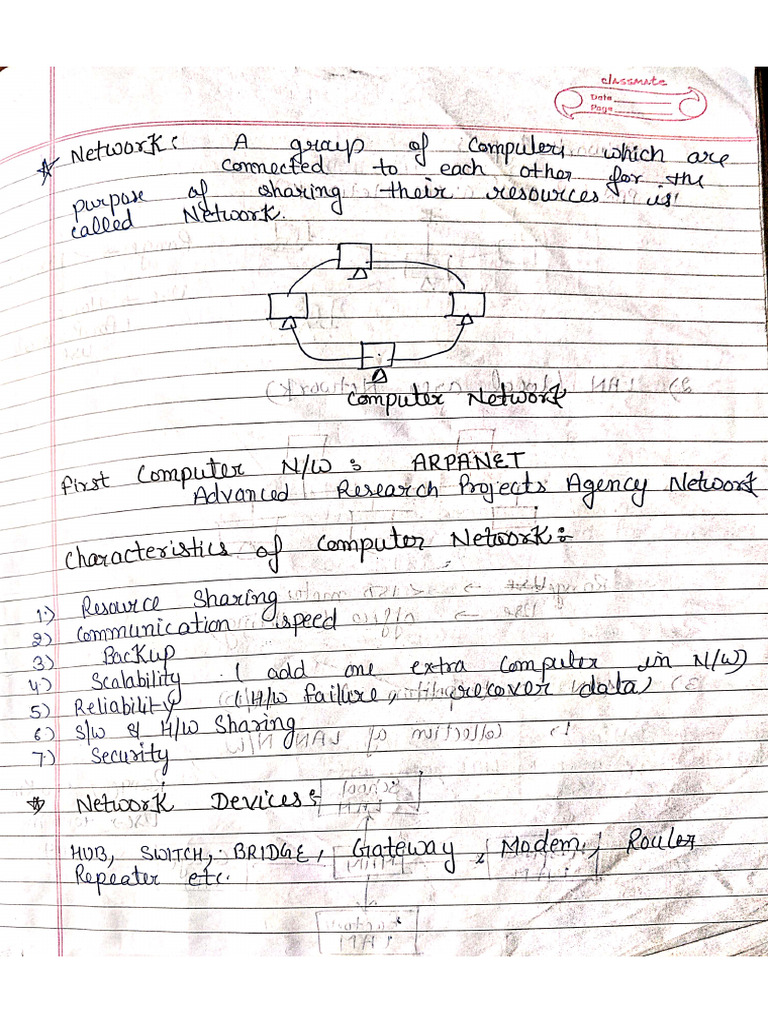 classmate
Date
Page
Network: A group of computers which are
connected to each other for the
purpose of sharing their resources is
called Network.
Computer Network
First Computer N/W : ARPANET
Advanced Research Projects Agency Network
Characteristics of Computer Network:-
1) Resource Sharing
2) Communication speed
3) Backup
4) Scalability ( add one extra computer in N/W)
5) Reliability ( H/w failure, recover data)
6) S/w & H/w Sharing
7) Security
Network Devices:
HUB, SWITCH, BRIDGE, Gateway, Modem, Router
Repeater etc.